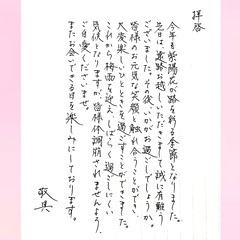 拝啓
今年も紫陽花が路を彩る季節となりました。
先日は、遠路お越しいただきまして誠に有難う
ございました。その後、いかがお過ごしでしょうか。
皆様のお元気な笑顔と触れ合うことができ、
大変楽しいひとときを過ごすことができました。
これから梅雨を迎え、しばらく過ごしにくい
気候となりますが、皆様体調崩されませんよう、
ご自愛くださいませ。
またお会いできる日を楽しみにしております。
敬具